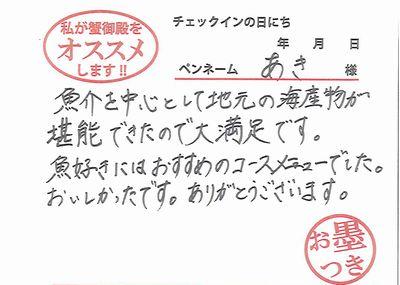 私が蟹御殿を
オススメ
します!!
チェックインの日にち
年 月 日
ペンネーム あき 様
魚介を中心として地元の海産物が
堪能できたので大満足です。
魚好きにはおすすめのコースメニューでした。
おいしかったです。ありがとうございます。
お墨
つき